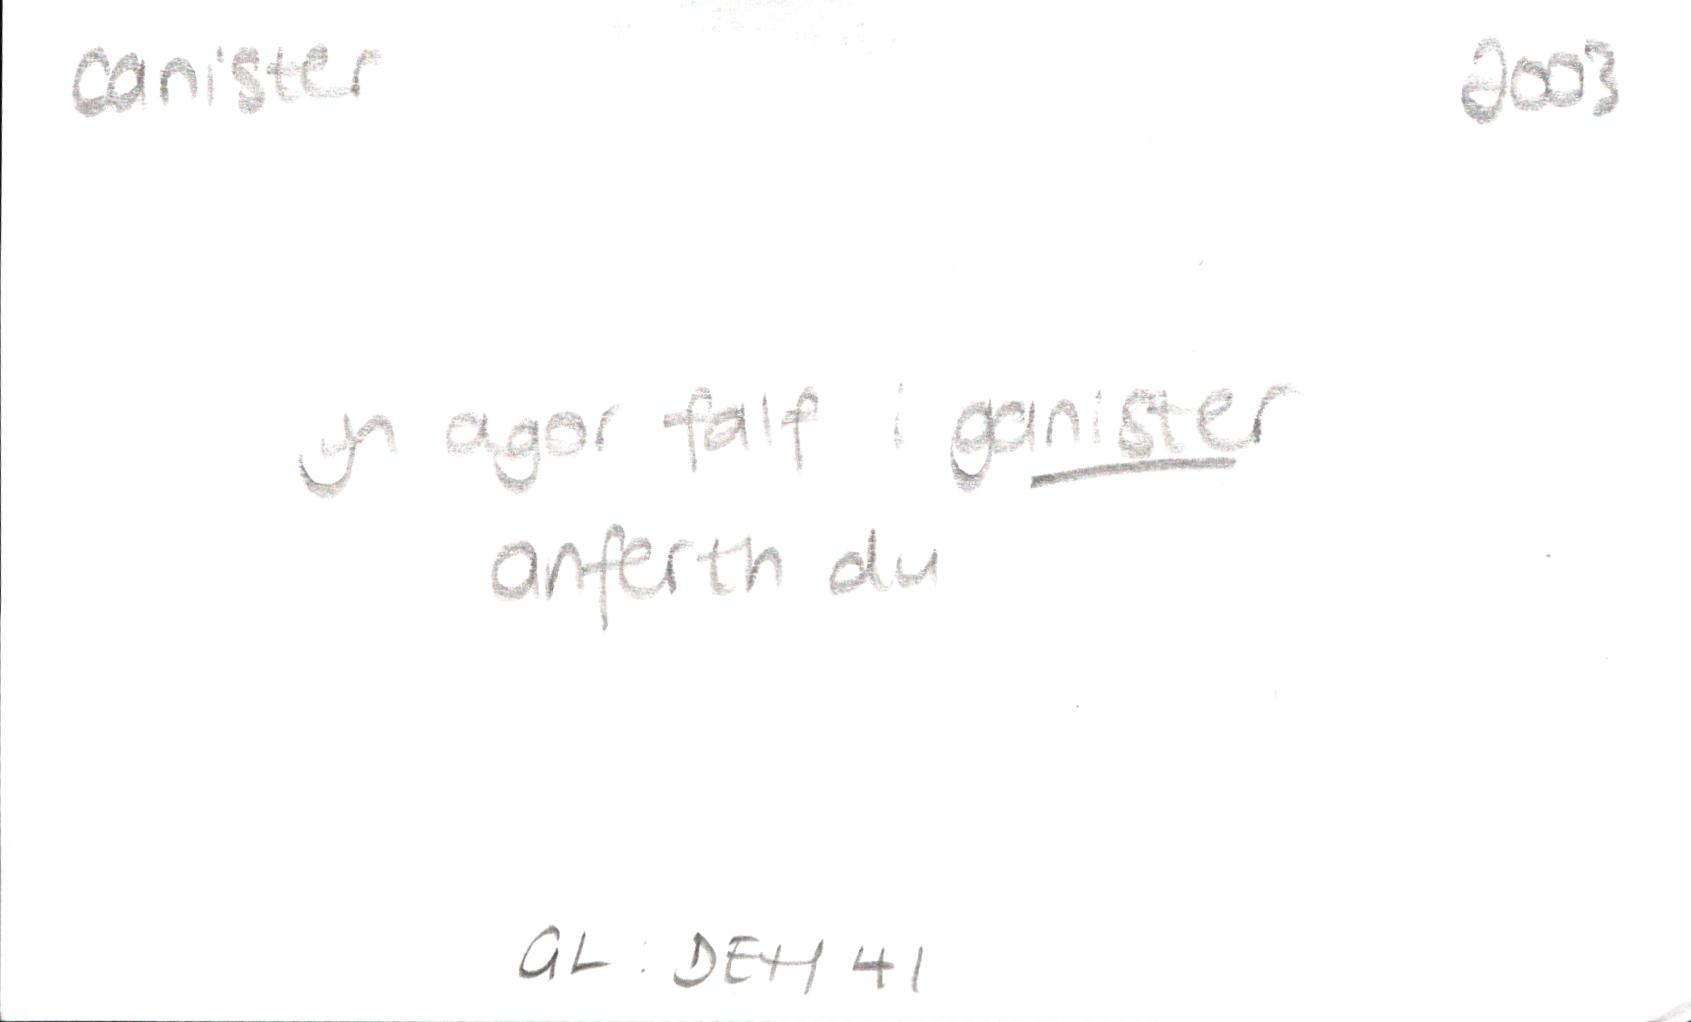 canister 2003
yn agor falf i ganister
anferth du
GL: DEH 41